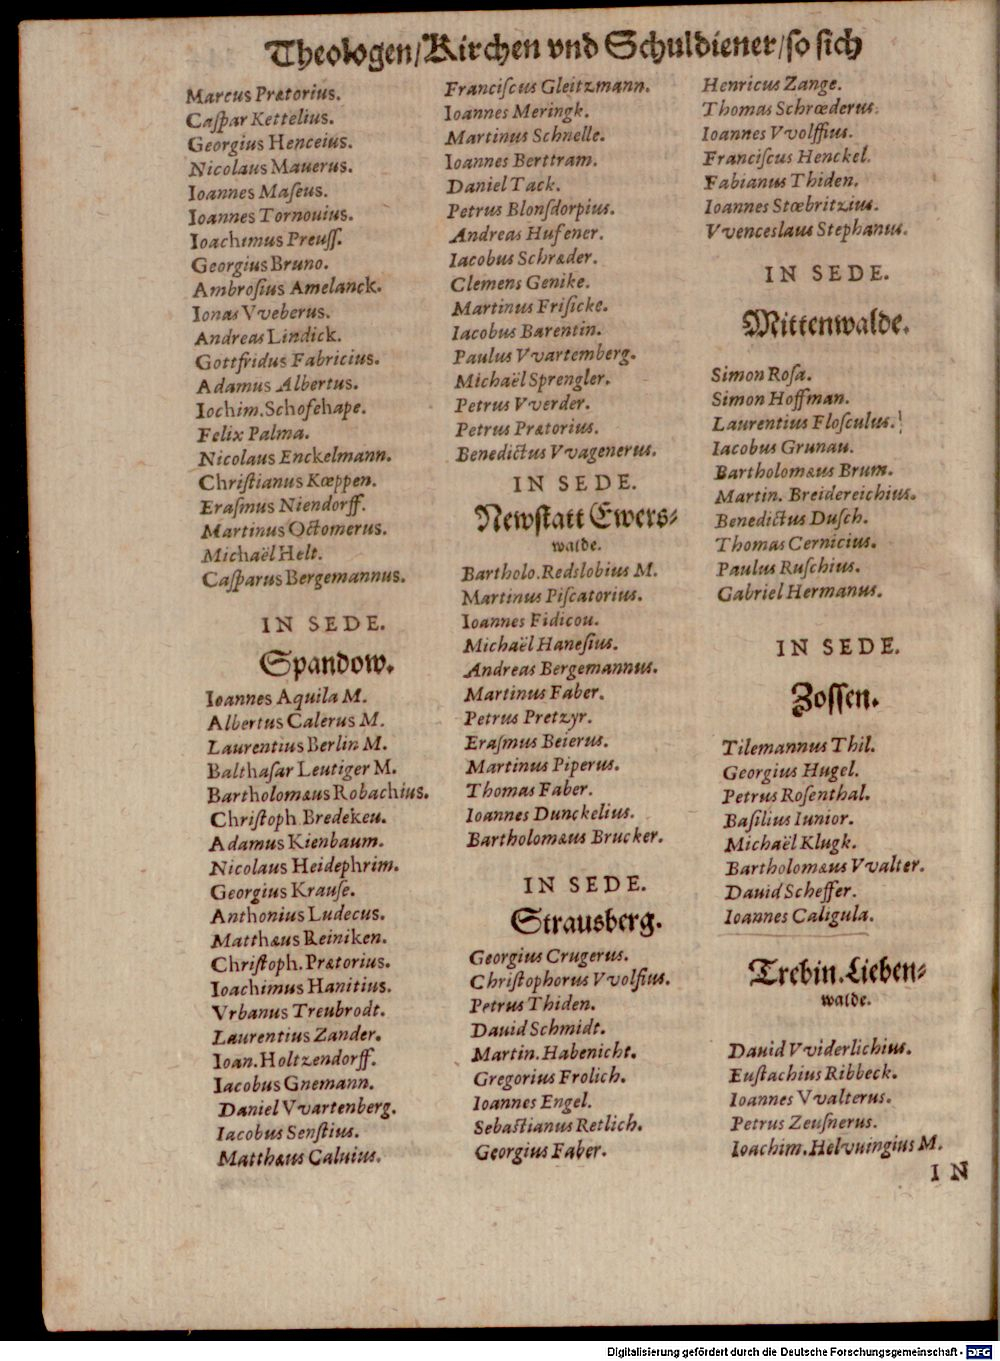 Theologen/Kirchen vnd Schuldiener/so sich
Marcus Prætorius.
Caſpar Kettelius.
Georgius Henceius.
Nicolaus Mauerus.
Ioannes Maſeus.
Ioannes Tornouius.
Ioachimus Preuſſ.
Georgius Bruno.
Ambroſius Amelanck.
Ionas Vveberus.
Andreas Lindick.
Gottfridus Fabricius.
Adamus Albertus.
Iochim. Schofehape.
Felix Palma.
Nicolaus Enckelmann.
Chriſtianus Kœppen.
Eraſmus Niendorff.
Martinus Octomerus.
Michaël Helt.
Caſparus Bergemannus.
IN SEDE.
Spandow.
Ioannes Aquila M.
Albertus Calerus M.
Laurentius Berlin M.
Balthaſar Leutiger M.
Bartholomæus Robachius.
Chriſtoph. Bredekeu.
Adamus Kienbaum.
Nicolaus Heidephrim.
Georgius Krauſe.
Anthonius Ludecus.
Matthæus Reiniken.
Chriſtoph. Prætorius.
Ioachimus Hanitius.
Vrbanus Treubrodt.
Laurentius Zander.
Ioan. Holtzendorff.
Iacobus Gnemann.
Daniel Vvartenberg.
Iacobus Senſtius.
Matthæus Caluius.
Franciſcus Gleitzmann.
Ioannes Meringk.
Martinus Schnelle.
Ioannes Berttram.
Daniel Tack.
Petrus Blonſdorpius.
Andreas Hufener.
Iacobus Schræder.
Clemens Genike.
Martinus Friſicke.
Iacobus Barentin.
Paulus Vvartemberg.
Michaël Sprengler.
Petrus Vverder.
Petrus Prætorius.
Benedictus Vvagenerus.
IN SEDE.
Newſtatt Ewers⸗
walde.
Bartholo. Redslobius M.
Martinus Piſcatorius.
Ioannes Fidicou.
Michaël Haneſius.
Andreas Bergemannus.
Martinus Faber.
Petrus Pretzyr.
Eraſmus Beierus.
Martinus Piperus.
Thomas Faber.
Ioannes Dunckelius.
Bartholomæus Brucker.
IN SEDE.
Strausberg.
Georgius Crugerus.
Chriſtophorus Vvolfius.
Petrus Thiden.
Dauid Schmidt.
Martin. Habenicht.
Gregorius Frolich.
Ioannes Engel.
Sebaſtianus Retlich.
Georgius Faber.
Henricus Zange.
Thomas Schrœderus.
Ioannes Vvolffius.
Franciſcus Henckel.
Fabianus Thiden.
Ioannes Stœbritzius.
Vvenceslaus Stephanus.
IN SEDE.
Mittenwalde.
Simon Roſa.
Simon Hoffman.
Laurentius Floſculus.
Iacobus Grunau.
Bartholomæus Brum.
Martin. Breidereichius.
Benedictus Duſch.
Thomas Cernicius.
Paulus Ruſchius.
Gabriel Hermanus.
IN SEDE.
Zoſſen.
Tilemannus Thil.
Georgius Hugel.
Petrus Roſenthal.
Baſilius Iunior.
Michaël Klugk.
Bartholomæus Vvalter.
Dauid Scheffer.
Ioannes Caligula.
Trebin. Lieben⸗
walde.
Dauid Vviderlichius.
Euſtachius Ribbeck.
Ioannes Vvalterus.
Petrus Zeuſnerus.
Ioachim. Helvuingius M.
IN
Digitalisierung gefördert durch die Deutsche Forschungsgemeinschaft - DFG